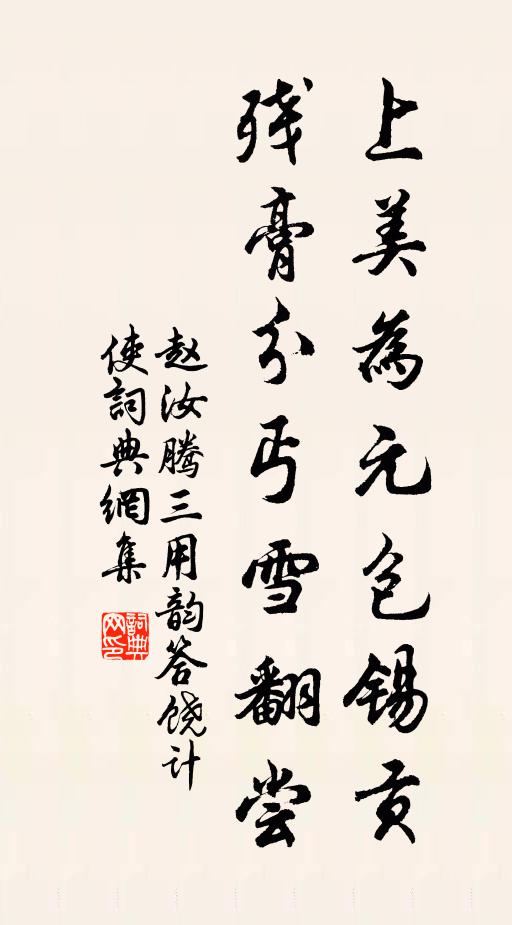 上美為元包锡贡
残膏分丐雪翻尝
赵汝腾三用韵答饶计
使詞典網集
詞典
网印